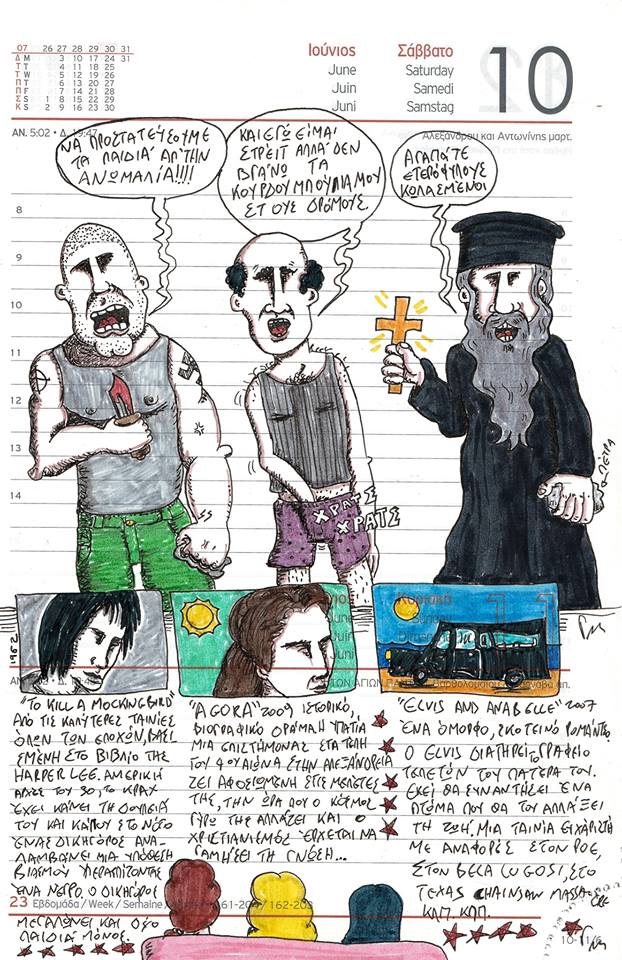 07 26 27 28 29 30 31
Δ M 3 10 17 24 31
T T 4 11 18 25
T W 5 12 19 26
Π T 6 13 20 27
Π F 7 14 21 28
Σ S 1 8 15 22 29
K S 2 9 16 23 30
Ιούνιος
June
Juin
Juni
Σάββατο
Saturday
Samedi
Samstag
10
ΑΝ. 5:02 • Δ. 19:47
Αλεξάνδρου και Αντωνίνης μαρτ.
ΝΑ ΠΡΟΣΤΑΤΕΥΣΟΥΜΕ
ΤΑ ΠΑΙΔΙΑ ΑΠ' ΤΗΝ
ΑΝΩΜΑΛΙΑ!!!!
ΚΑΙ ΕΓΩ ΕΙΜΑΙ
ΣΤΡΕΙΤ ΑΛΛΑ ΔΕΝ
ΒΓΑΝΩ ΤΑ
ΚΟΥΡΟΥΜΠΟΥΛΙΑ ΜΟΥ
ΣΤΟΥΣ ΔΡΟΜΟΥΣ.
ΑΓΑΠΑΤΕ
ΕΤΕΡΟΦΥΛΟΥΣ
ΚΩΛΑΣΜΕΝΟΙ
8
9
10
11
12
13
14
ΠΕΤΡΑ
ΧΡΑΤΣ
ΧΡΑΤΣ
Κυριακή
Sunday
11
1962
"TO KILL A MOCKINGBIRD"
ΑΠΟ ΤΙΣ ΚΑΛΥΤΕΡΕΣ ΤΑΙΝΙΕΣ
ΟΛΩΝ ΤΩΝ ΕΠΟΧΩΝ, ΒΑΣΙ
ΣΜΕΝΗ ΣΤΟ ΒΙΒΛΙΟ ΤΗΣ
HARPER LEE. ΑΜΕΡΙΚΗ
ΑΡΧΕΣ ΤΟΥ 30, ΤΟ ΚΡΑΧ
ΕΧΕΙ ΚΑΝΕΙ ΤΗ ΔΟΥΛΕΙΑ
ΤΟΥ ΚΑΙ ΚΑΠΟΥ ΣΤΟ ΝΟΤΟ
ΕΝΑΣ ΔΙΚΗΓΟΡΟΣ ΑΝΑ-
ΛΑΜΒΑΝΕΙ ΜΙΑ ΥΠΟΘΕΣΗ
ΒΙΑΣΜΟΥ ΥΠΕΡΑΠΙΖΟΝΤΑΣ
ΕΝΑ ΝΕΓΡΟ, Ο ΔΙΚΗΓΟΡΟΣ
ΜΕΓΑΛΩΝΕΙ ΚΑΙ ΔΥΟ
ΠΑΙΔΙΑ ΜΟΝΟΣ.
"AGORA" 2009 ΙΣΤΟΡΙΚΟ,
ΒΙΟΓΡΑΦΙΚΟ ΔΡΑΜΑ, Η ΥΠΑΤΙΑ
ΜΙΑ ΕΠΙΣΤΗΜΟΝΑΣ ΣΤΑ ΤΕΛΗ
ΤΟΥ 4ΟΥ ΑΙΩΝΑ ΣΤΗΝ ΑΛΕΞΑΝΔΡΕΙΑ
ΖΕΙ ΑΦΟΣΙΩΜΕΝΗ ΣΤΙΣ ΜΕΛΕΤΕΣ
ΤΗΣ, ΤΗΝ ΩΡΑ ΠΟΥ Ο ΚΟΣΜΟΣ
ΓΥΡΩ ΤΗΣ ΑΛΛΑΖΕΙ ΚΑΙ Ο
ΧΡΙΣΤΙΑΝΙΣΜΟΣ ΕΡΧΕΤΑΙ ΝΑ
ΓΑΜΗΣΕΙ ΤΗ ΓΝΩΣΗ...
"ELVIS AND ANABELLE" 2007
ΕΝΑ ΟΜΟΡΦΟ, ΣΚΟΤΕΙΝΟ ΡΟΜΑΝΤΖΟ.
Ο ELVIS ΔΙΑΤΗΡΕΙ ΤΟ ΓΡΑΦΕΙΟ
ΤΕΛΕΤΩΝ ΤΟΥ ΠΑΤΕΡΑ ΤΟΥ.
ΕΚΕΙ ΘΑ ΣΥΝΑΝΤΗΣΕΙ ΕΝΑ
ΠΤΩΜΑ ΠΟΥ ΘΑ ΤΟΥ ΑΛΛΑΞΕΙ
ΤΗ ΖΩΗ, ΜΙΑ ΤΑΙΝΙΑ ΕΥΧΑΡΙΣΤΗ
ΜΕ ΑΝΑΦΟΡΕΣ ΣΤΟΝ POE,
ΣΤΟΝ BELA LUGOSI, ΣΤΟ
TEXAS CHAINSAW MASSACRE
ΚΛΠ. ΚΛΠ.
23 Εβδομάδα / Week / Semaine